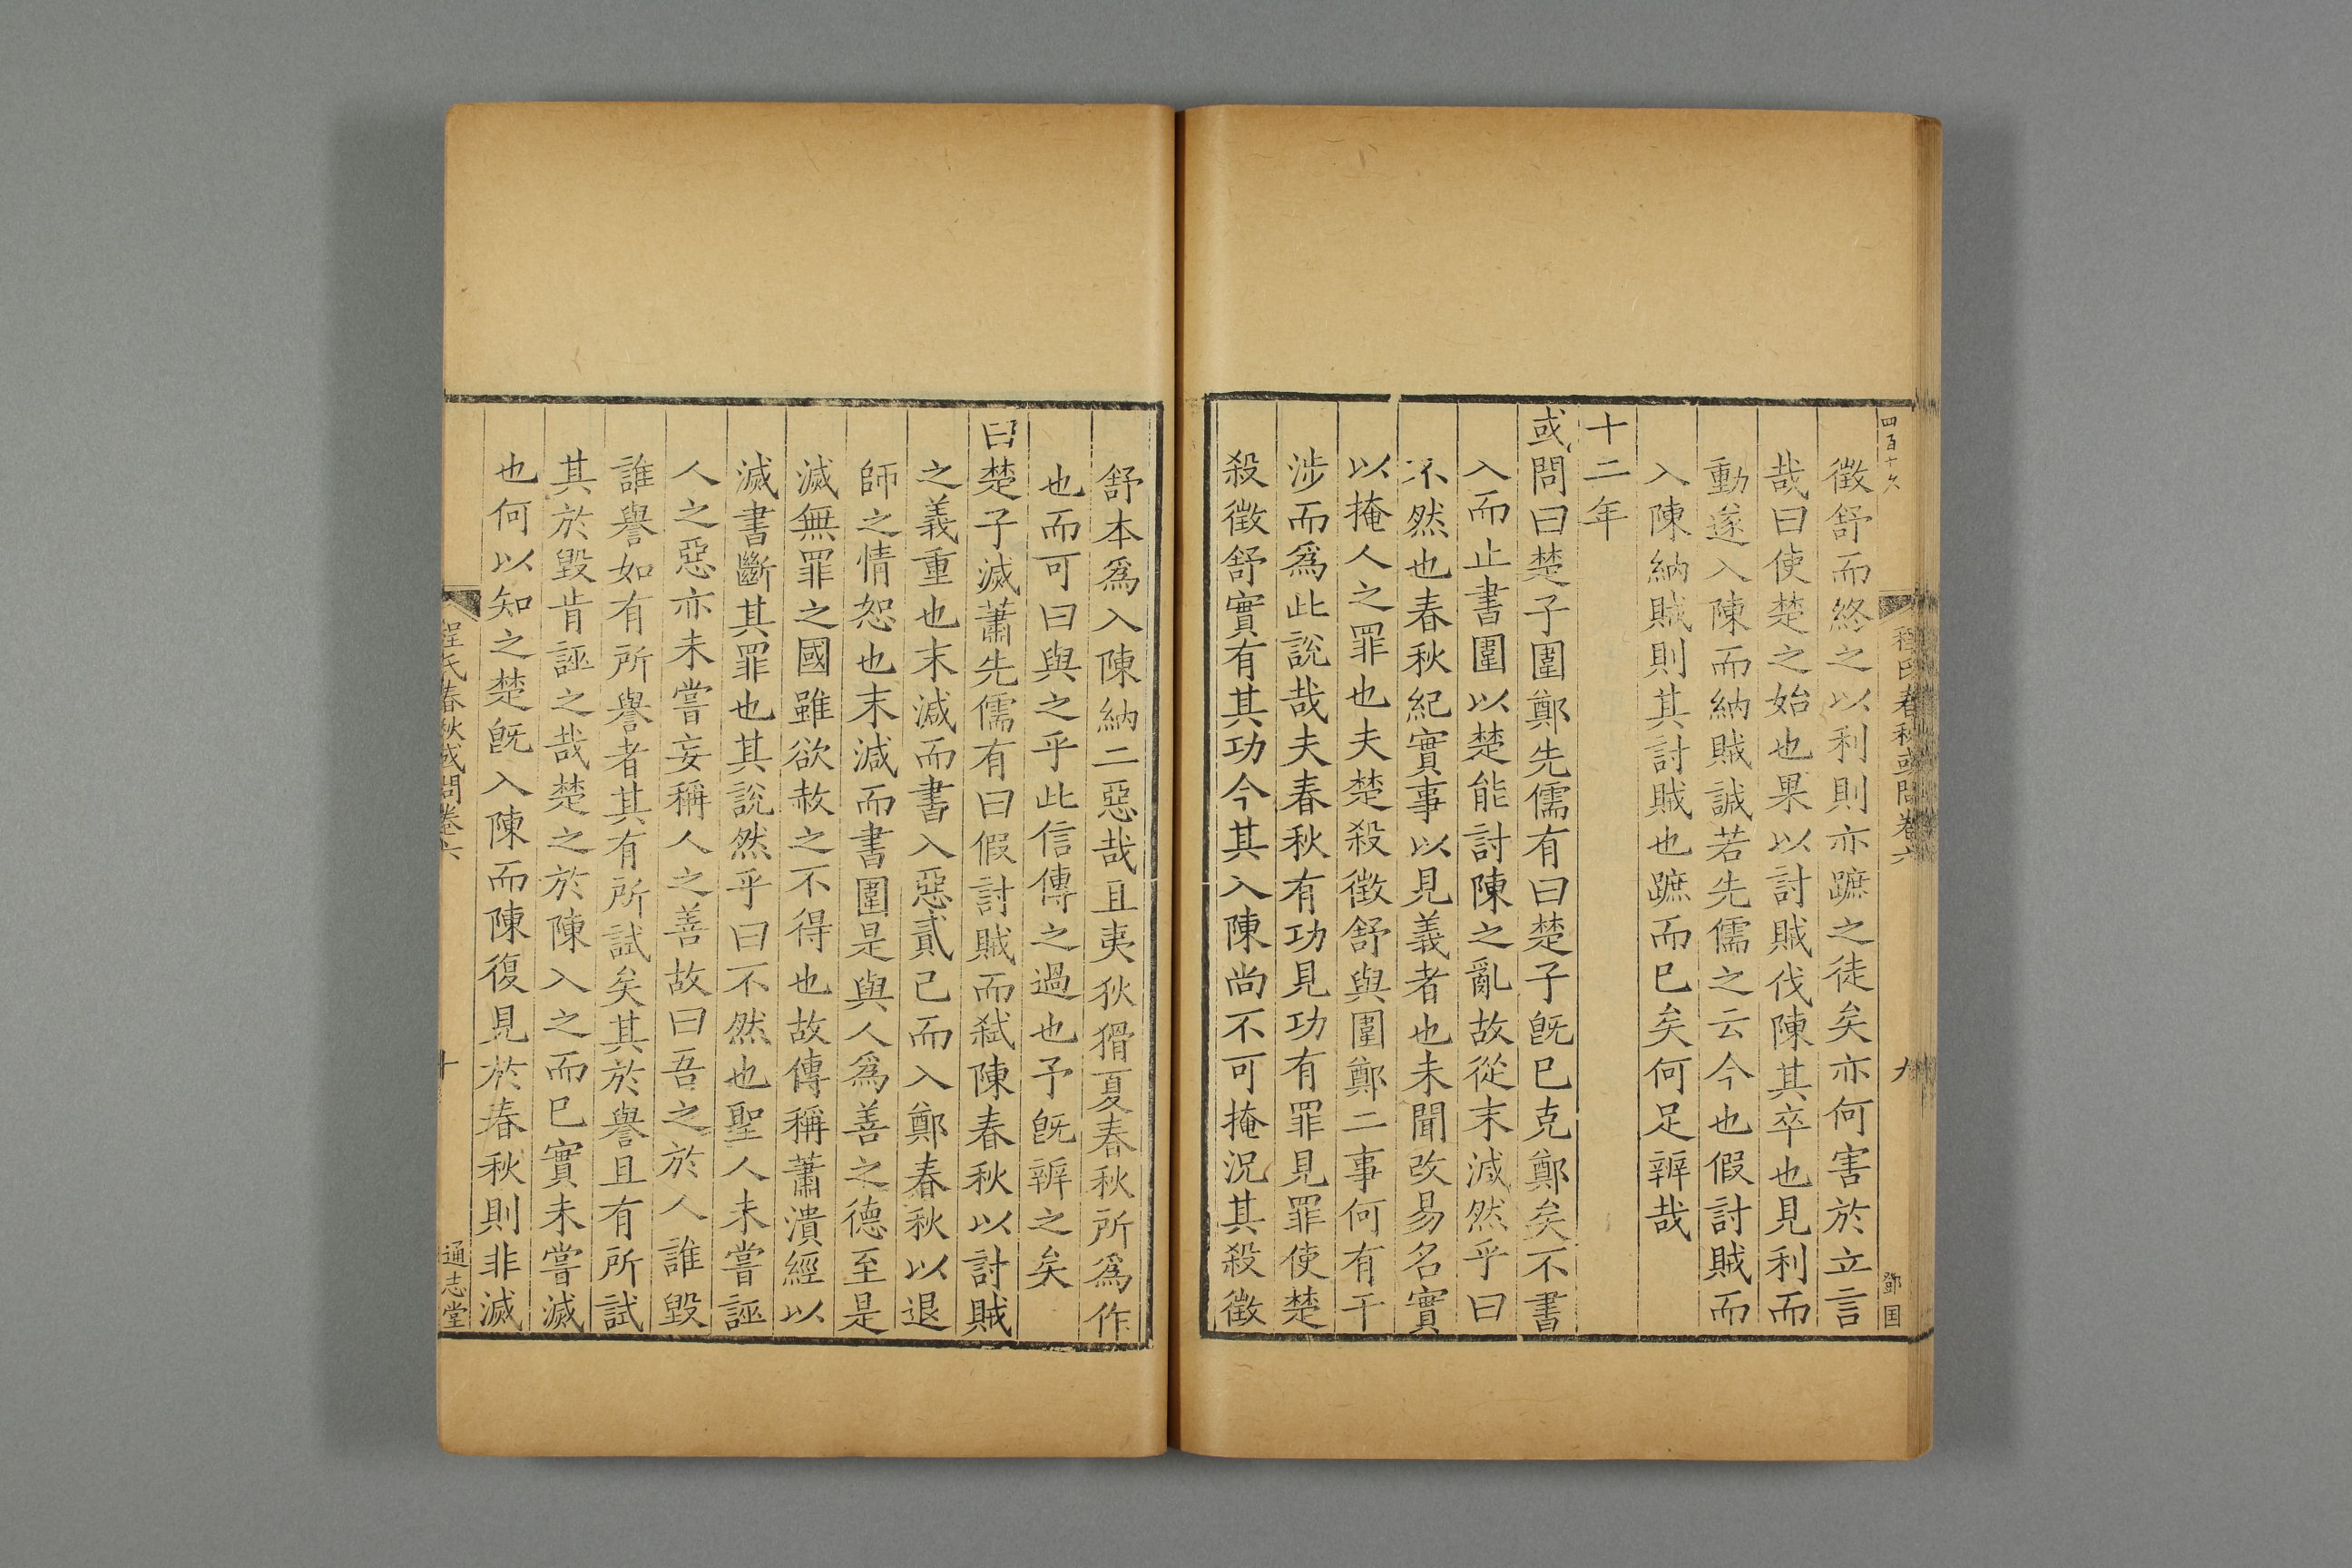 四百十久
程氏春秋或問卷六
九
鄧国
徵舒而終之以利則亦蹠之徒矣亦何害於立言
哉曰使楚之始也果以討賊伐陳其卒也見利而
動遂入陳而納賊誠若先儒之云今也假討賊而
入陳納賊則其討賊也蹠而已矣何足辨哉
十二年
或問曰楚子圍鄭先儒有曰楚子旣已克鄭矣不書
入而止書圍以楚能討陳之亂故從末減然乎曰
不然也春秋紀實事以見義者也未聞改易名實
以掩人之罪也夫楚殺徵舒與圍鄭二事何有干
涉而爲此說哉夫春秋有功見功有罪見罪使楚
殺徵舒實有其功今其入陳尚不可掩況其殺徵
舒本爲入陳納二惡哉且夷狄猾夏春秋所爲作
也而可曰與之乎此信傳之過也予旣辨之矣
曰楚子滅蕭先儒有曰假討賊而弑陳春秋以討賊
之義重也末減而書入惡貳己而入鄭春秋以退
師之情恕也末減而書圍是與人爲善之德至是
滅無罪之國雖欲赦之不得也故傳稱蕭潰經以
滅書斷其罪也其說然乎曰不然也聖人未嘗誣
人之惡亦未嘗妄稱人之善故曰吾之於人誰毀
誰譽如有所譽者其有所試矣其於譽且有所試
其於毀肯誣之哉楚之於陳入之而已實未嘗滅
也何以知之楚旣入陳而陳復見於春秋則非滅
程氏春秋或問卷六
十
通志堂